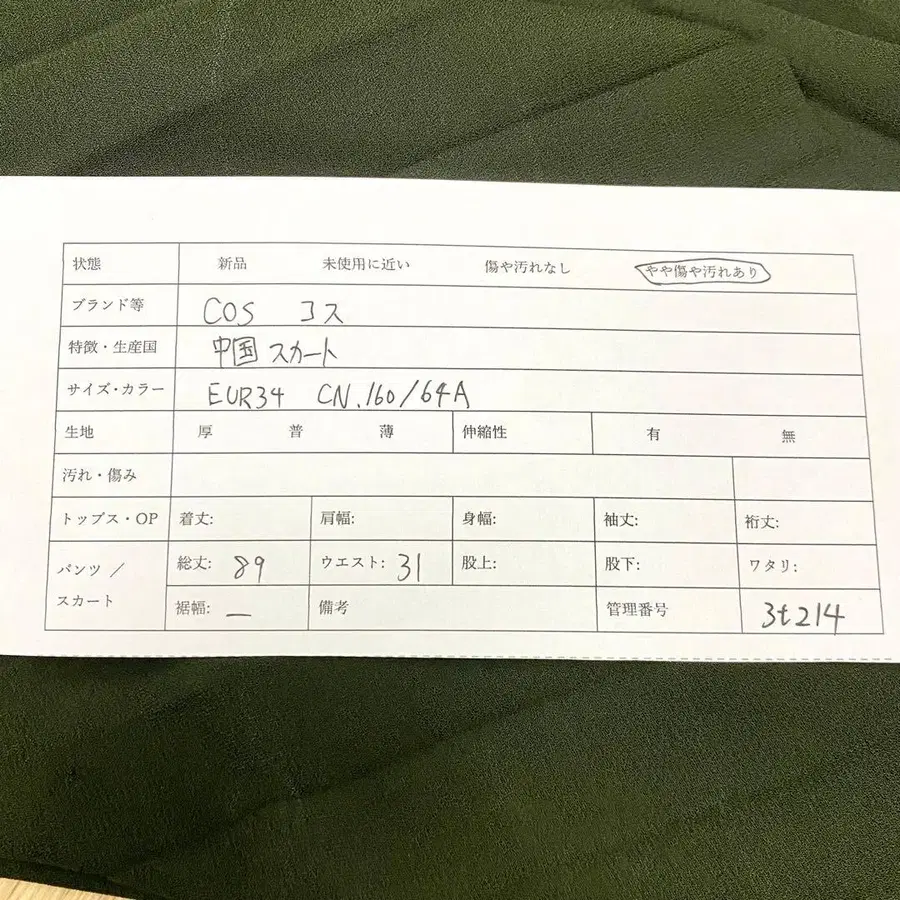 状態 新品 未使用に近い 傷や汚れなし やや傷や汚れあり
ブランド等 COS コス
特徴・生産国 中国 スカート
サイズ・カラー EUR34 CN.160/64A
生地 厚 普 薄 伸縮性 有 無
汚れ・傷み
トップス・OP 着丈: 肩幅: 身幅: 袖丈: 裄丈:
パンツ / スカート 総丈: 89 ウエスト: 31 股上: 股下: ワタリ:
裾幅: — 備考 管理番号 3t214